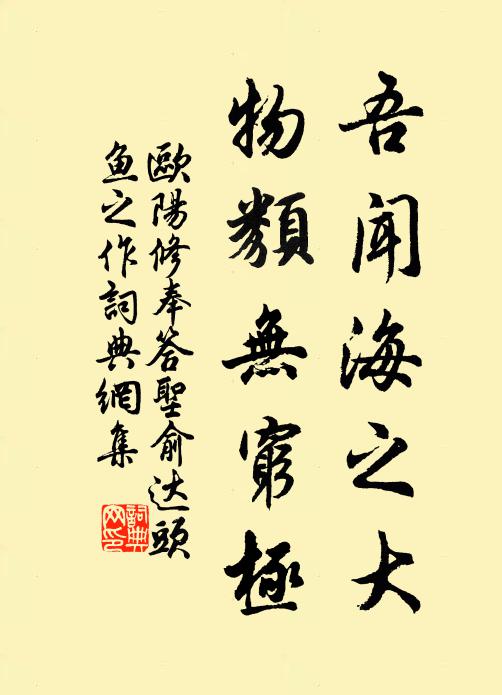 吾闻海之大
物類無窮極
歐陽修奉答聖俞达頭
鱼之作詞典網集
詞典网印